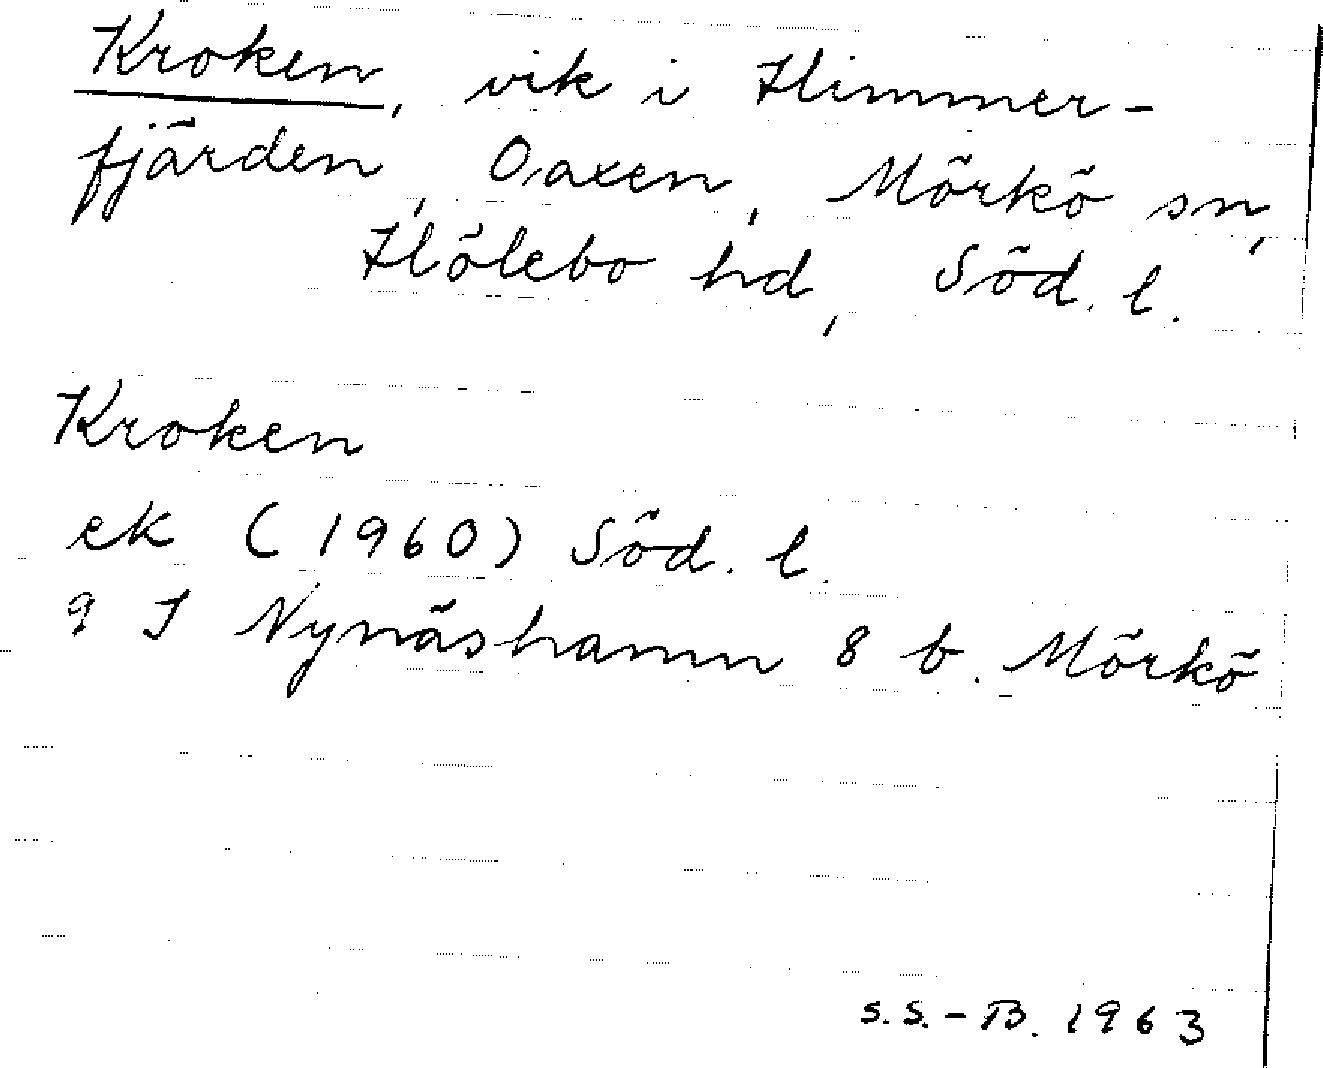 Kroken, vik i Himmer-
fjärden, Oaxen, Mörkö sn,
Hölebo hd, Söd. l.
Kroken
ek (1960) Söd. l.
9 I Nynäshamn 8 b. Mörkö
S.S.-B. 1963